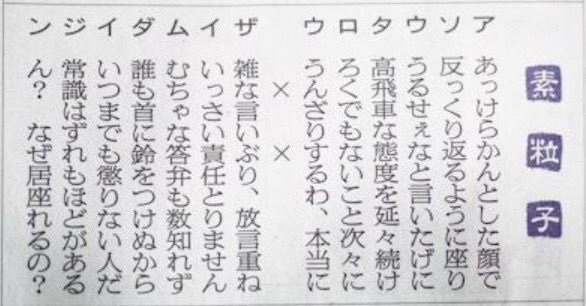 素粒子
ア　あっけらかんとした顔で
ソ　反っくり返るように座り
ウ　うるせぇなと言いたげに
タ　高飛車な態度を延々続け
ロ　ろくでもないこと次々に
ウ　うんざりするわ、本当に
×　×
ザ　雑な言いぶり、放言重ね
イ　いっさい責任とりません
ム　むちゃな答弁も数知れず
ダ　誰も首に鈴をつけぬから
イ　いつまでも懲りない人だ
ジ　常識はずれもほどがある
ン　ん？　なぜ居座れるの？